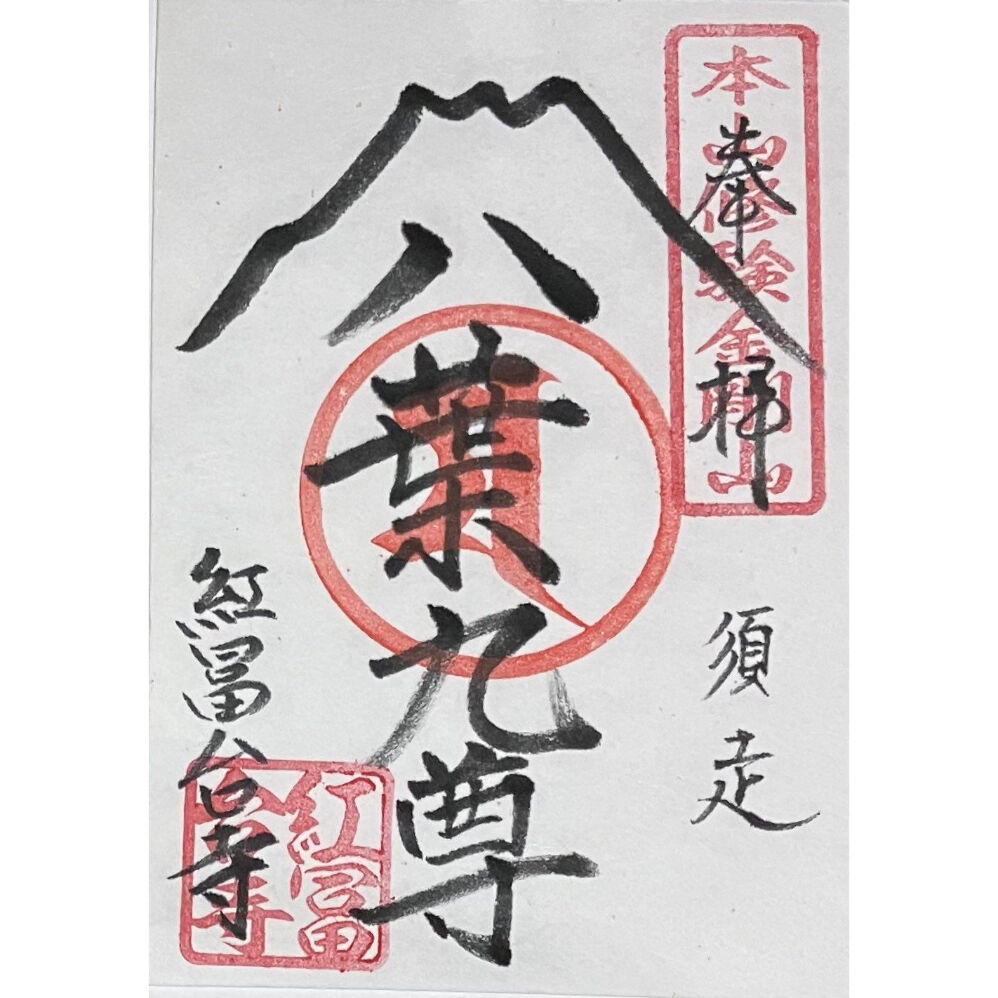 奉拝
本山修験金剛山
須走
八葉九尊
紅冨台寺
紅冨台寺